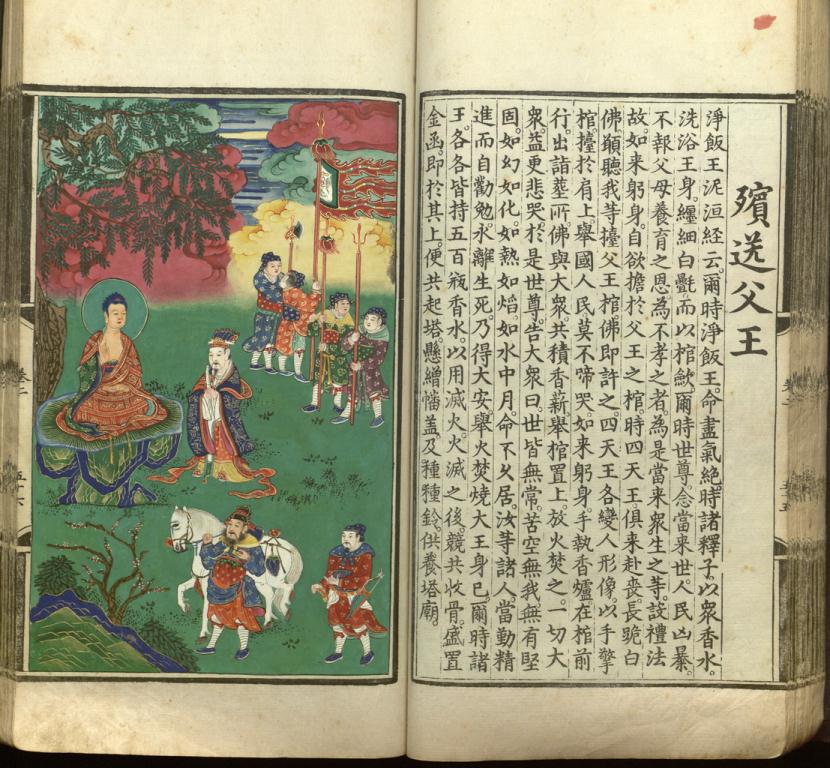 殯送父王
淨飯王泥洹経云。爾時淨飯王。命盡氣絶。時諸釋子。以衆香水。
洗浴王身。纏細白㲲。而以棺歛。爾時世尊。念當来世。人民凶暴。
不報父母養育之恩。為不孝之者。為是當来衆生之等。設禮法
故。如来躬身。自欲擔於父王之棺。時四天王。俱来赴喪。長跪白
佛。願聽我等擡父王棺。佛即許之。四天王各變人形像。以手擎
棺。擡於肩上。舉國人民。莫不啼哭。如来躬身。手執香爐。在棺前
行。出詣塟所。佛與大衆。共積香薪。舉棺置上。放火焚之。一切大
衆。益更悲哭。於是世尊。告大衆曰。世皆無常。苦空無我。無有堅
固。如幻如化。如熱如焰。如水中月。命不久居。汝等諸人。當勤精
進。而自勸勉。永離生死。乃得大安。舉火焚燒大王身已。爾時諸
王。各各皆持五百瓶香水。以用滅火。火滅之後。競共收骨。盛置
金函。即於其上。便共起塔。懸繒幡蓋。及種種鈴。供養塔廟。
卷二
五十五
卷二
五十六